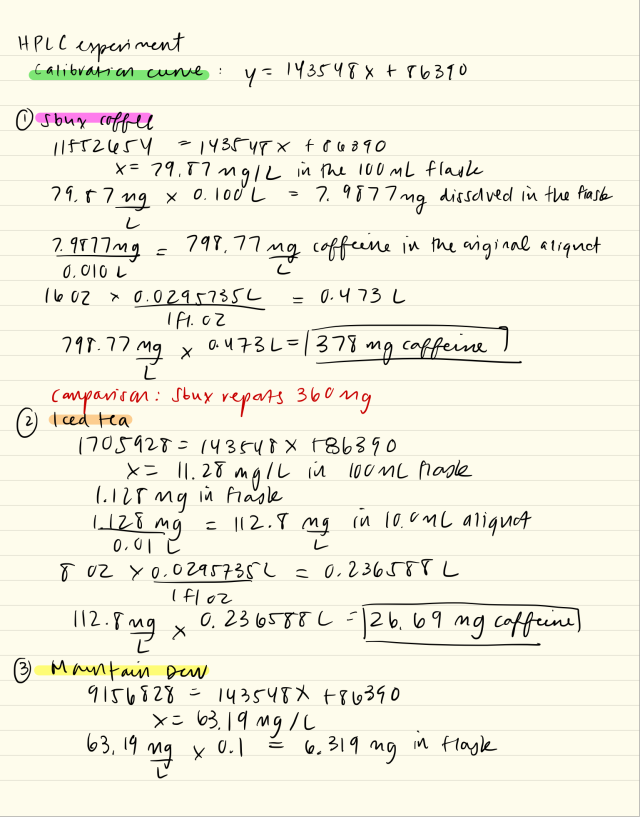 HPLC experiment
calibration curve: y = 143548x + 86390
① Sbux coffee
11552654 = 143548x + 86390
x = 79.87 mg/L in the 100 mL flask
79.87 mg/L × 0.100 L = 7.9877 mg dissolved in the flask
7.9877 mg / 0.010 L = 798.77 mg/L caffeine in the original aliquot
16 oz × 0.0295735 L / 1 fl. oz = 0.473 L
798.77 mg/L × 0.473 L = 378 mg caffeine
Comparison: Sbux reports 360 mg
② Iced tea
1705928 = 143548x + 86390
x = 11.28 mg/L in 100 mL flask
1.128 mg in flask
1.128 mg / 0.01 L = 112.8 mg/L in 10.0 mL aliquot
8 oz × 0.0295735 L / 1 fl oz = 0.236588 L
112.8 mg/L × 0.236588 L = 26.69 mg caffeine
③ Mountain Dew
9156828 = 143548x + 86390
x = 63.19 mg/L
63.19 mg/L × 0.1 = 6.319 mg in flask